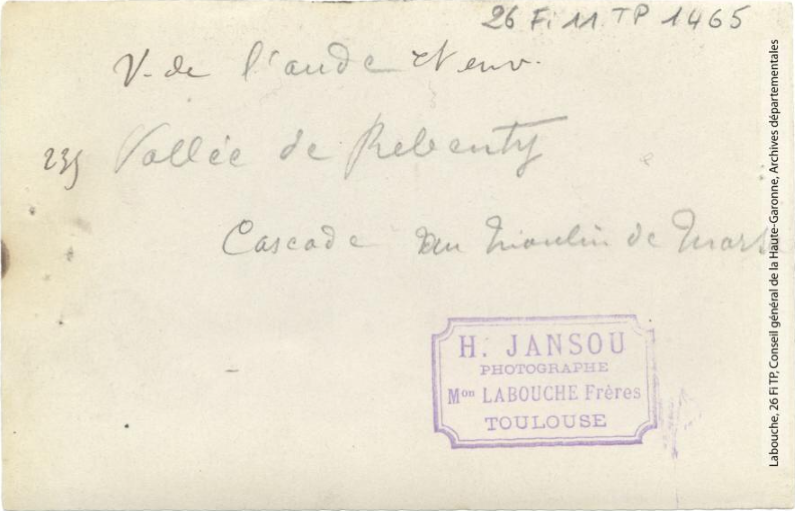 26 Fi 11 TP 1465
V. de l'aude et env.
235 Vallée de Rebenty
Cascade du Moulin de Mars
H. JANSOU
PHOTOGRAPHE
Mon LABOUCHE Frères
TOULOUSE
Labouche, 26 Fi TP, Conseil général de la Haute-Garonne, Archives départementales